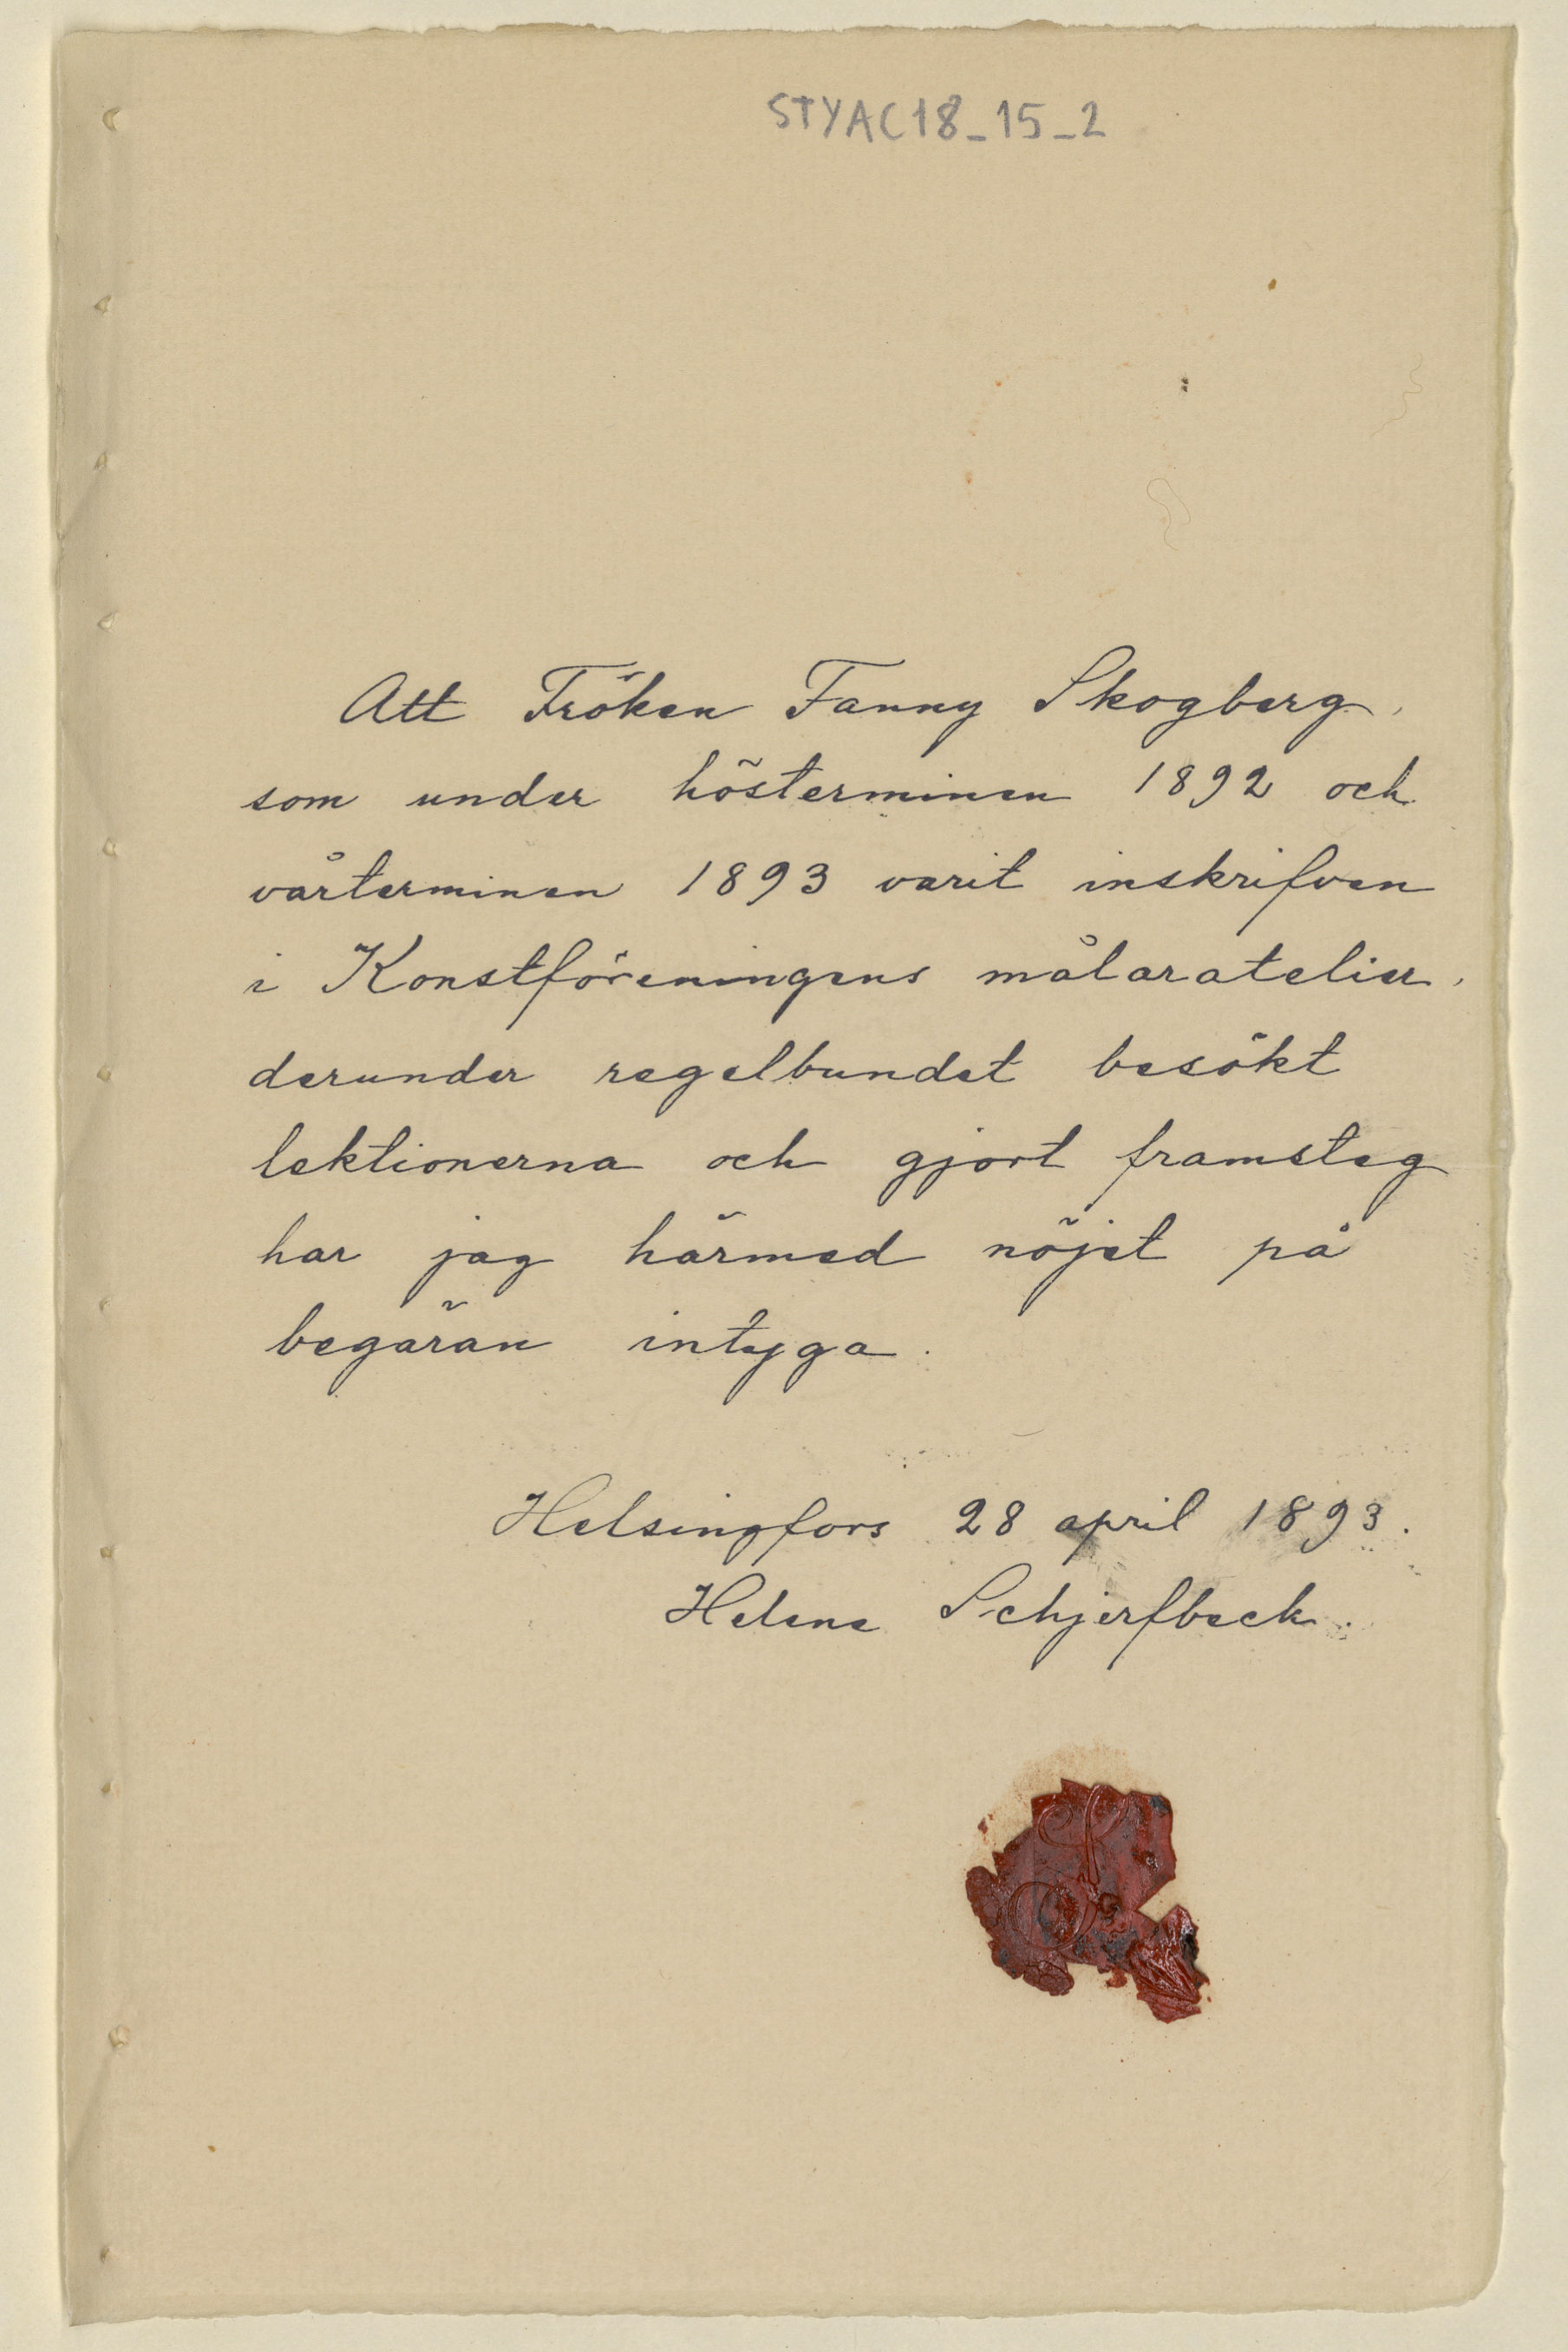 STYAC18_15_2
Att Fröken Fanny Skogberg,
som under hösterminen 1892 och
vårterminen 1893 varit inskrifven
i Konstföreningens målaratelier,
derunder regelbundet besökt
lektionerna och gjort framsteg
har jag härmed nöjet på
begäran intyga.
Helsingfors 28 april 1893.
Helene Schjerfbeck.